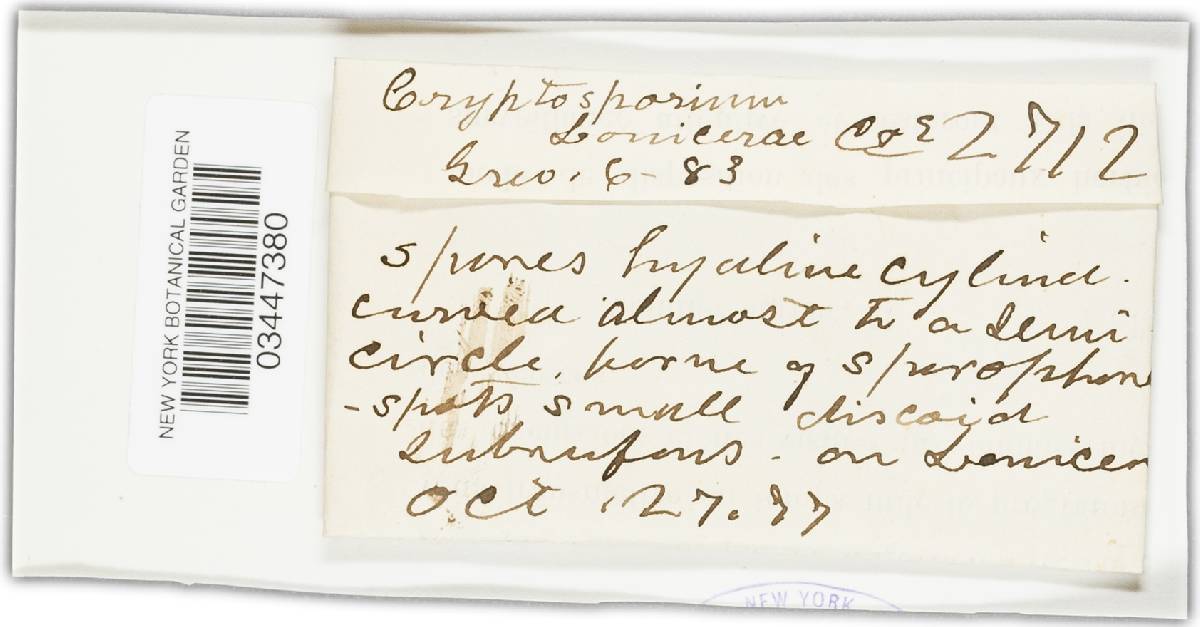 NEW YORK BOTANICAL GARDEN
03447380
Cryptosporium
Lonicerae C&E 2712
Grev. 6-83
spores hyaline cylind.
curved almost to a semi
circle, borne
sporophore
-spots small discoid
subrufous - on Lonicera
Oct. 27.77
NEW YORK